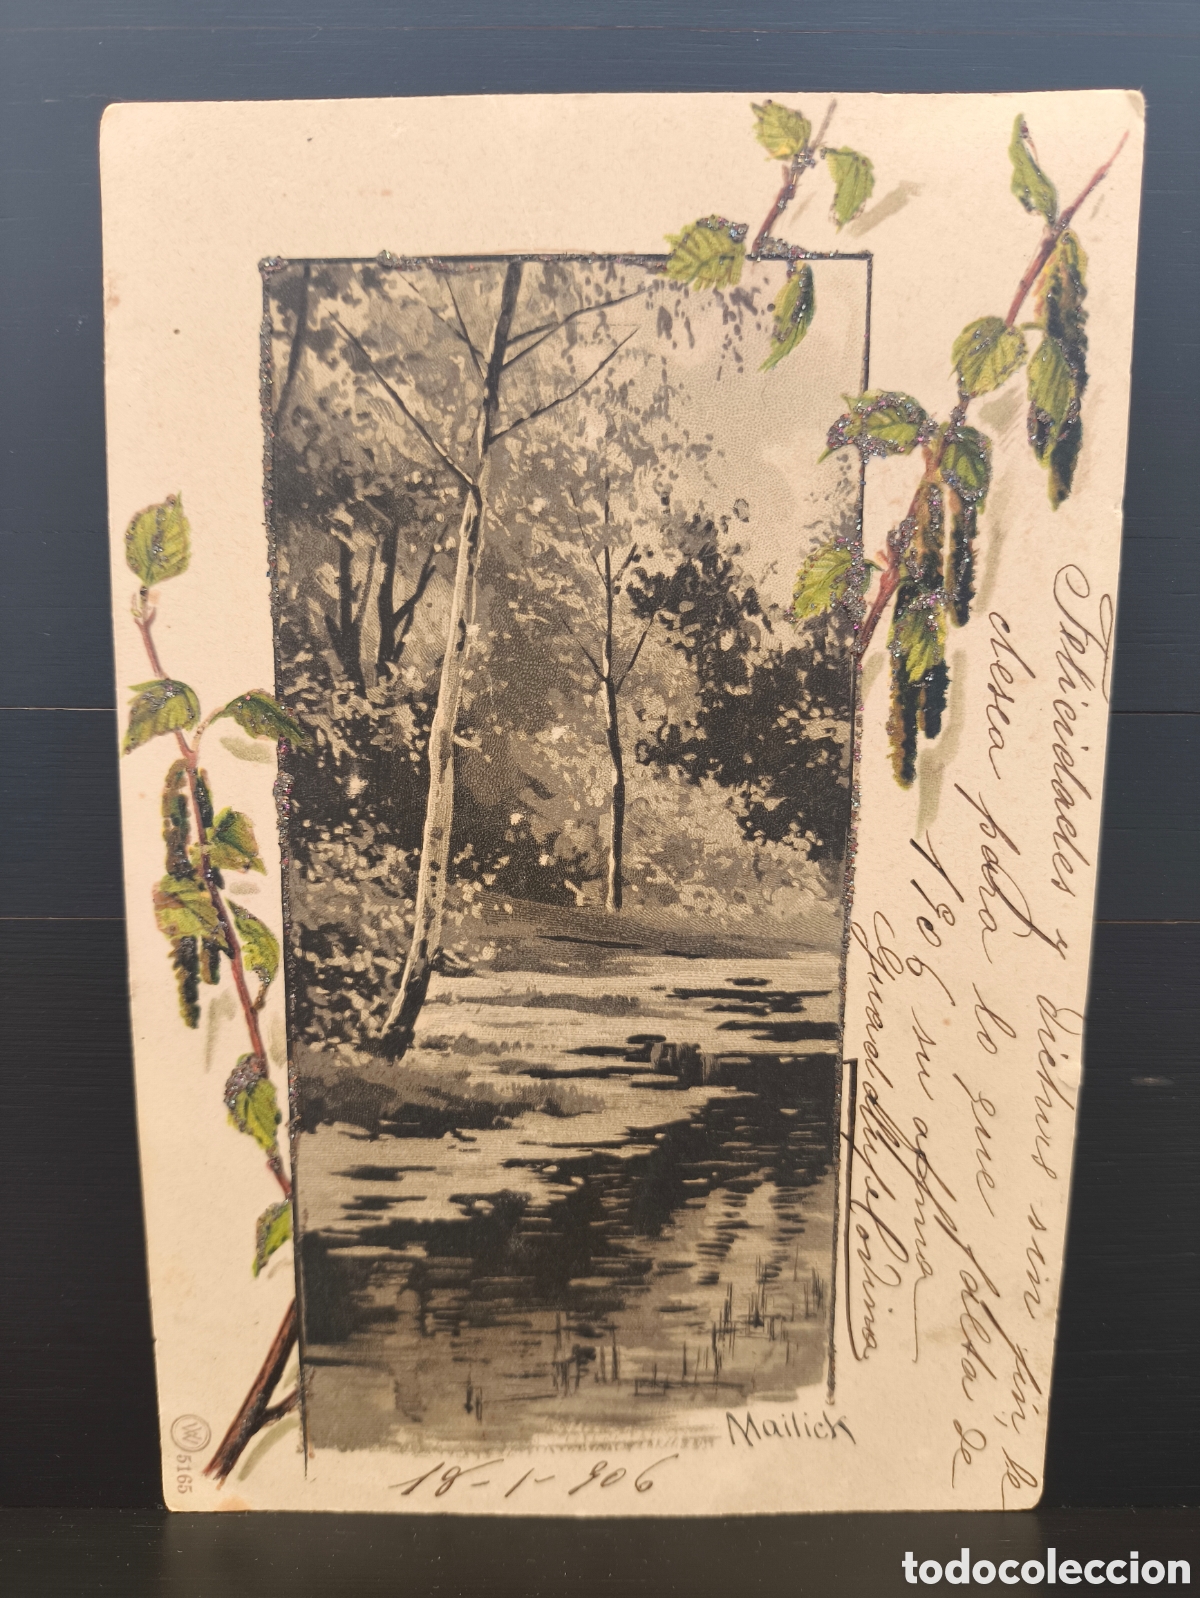 Felicidades y dichas sin fin, le
desea para lo que falta de
1906 su affma
Guadalupe
Mailick
18-1-906
5165
todocoleccion